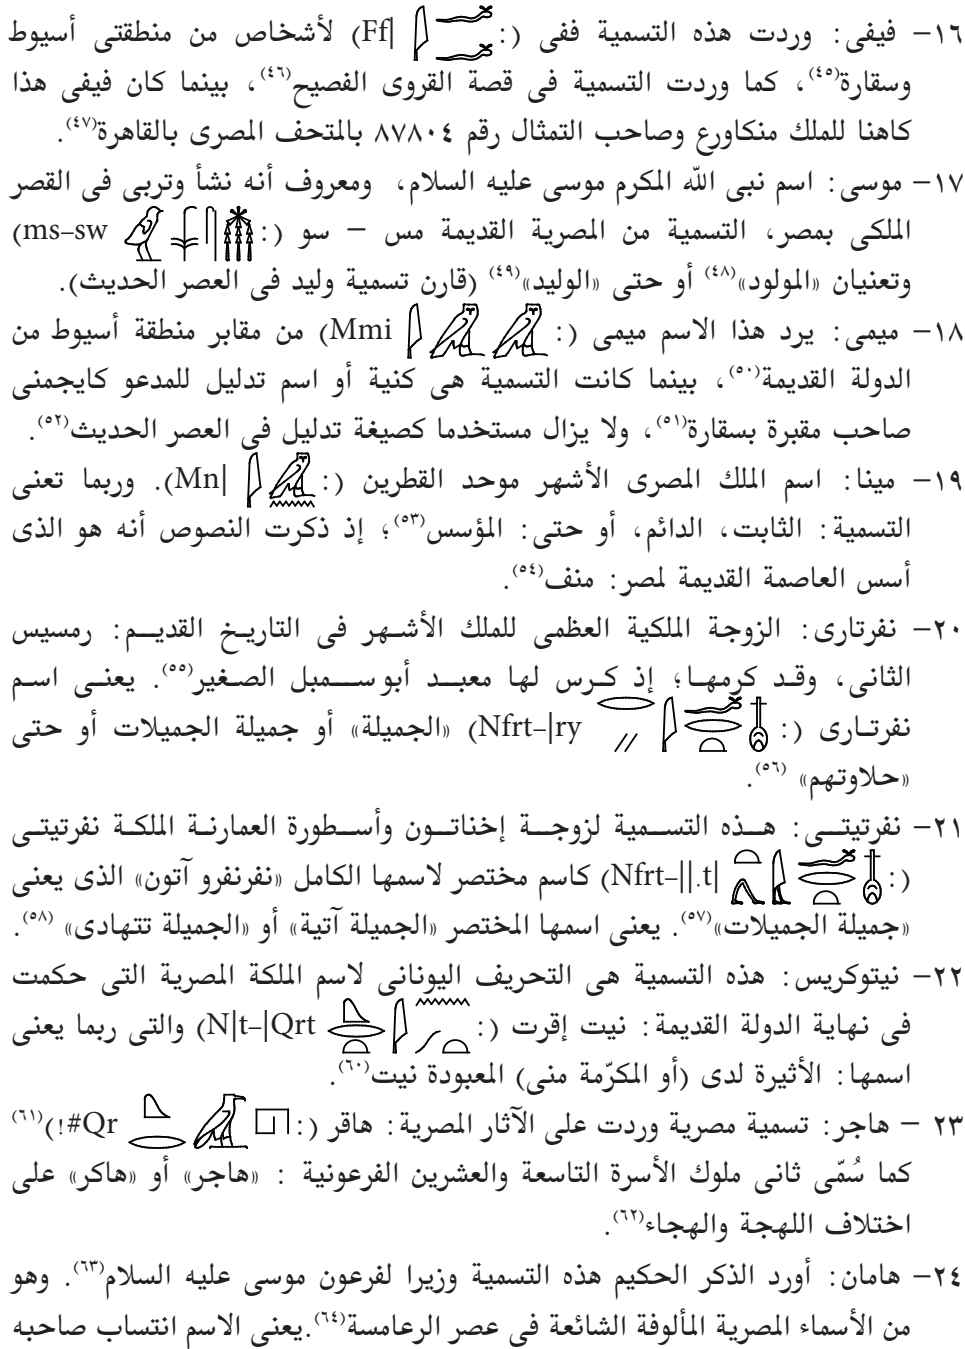 ١٦– فيفى: وردت هذه التسمية ففى (: Ff|) لأشخاص من منطقتى أسيوط
وسقارة(٤٥)، كما وردت التسمية فى قصة القروى الفصيح(٤٦)، بينما كان فيفى هذا
كاهنا للملك منكاورع وصاحب التمثال رقم ٨٧٨٠٤ بالمتحف المصرى بالقاهرة(٤٧).
١٧– موسى: اسم نبى الله المكرم موسى عليه السلام، ومعروف أنه نشأ وتربى فى القصر
الملكى بمصر، التسمية من المصرية القديمة مس – سو (: ms–sw)
وتعنيان «المولود»(٤٨) أو حتى «الوليد»(٤٩) (قارن تسمية وليد فى العصر الحديث).
١٨– ميمى: يرد هذا الاسم ميمى (: Mmi) من مقابر منطقة أسيوط من
الدولة القديمة(٥٠)، بينما كانت التسمية هى كنية أو اسم تدليل للمدعو كايجمنى
صاحب مقبرة بسقارة(٥١)، ولا يزال مستخدما كصيغة تدليل فى العصر الحديث(٥٢).
١٩– مينا: اسم الملك المصرى الأشهر موحد القطرين (: Mn|). وربما تعنى
التسمية: الثابت، الدائم، أو حتى: المؤسس(٥٣)؛ إذ ذكرت النصوص أنه هو الذى
أسس العاصمة القديمة لمصر: منف(٥٤).
٢٠– نفرتارى: الزوجة الملكية العظمى للملك الأشهر فى التاريخ القديم: رمسيس
الثانى، وقد كرمها؛ إذ كرس لها معبد أبوسمبل الصغير(٥٥). يعنى اسم
نفرتارى (: Nfrt–|ry) «الجميلة» أو جميلة الجميلات أو حتى
«حلاوتهم» (٥٦).
٢١– نفرتيتى: هذه التسمية لزوجة إخناتون وأسطورة العمارنة الملكة نفرتيتى
(: Nfrt–||.t|) كاسم مختصر لاسمها الكامل «نفرنفرو آتون» الذى يعنى
«جميلة الجميلات»(٥٧). يعنى اسمها المختصر «الجميلة آتية» أو «الجميلة تتهادى» (٥٨).
٢٢– نيتوكريس: هذه التسمية هى التحريف اليونانى لاسم الملكة المصرية التى حكمت
فى نهاية الدولة القديمة: نيت إقرت (: N|t–|Qrt) والتى ربما يعنى
اسمها: الأثيرة لدى (أو المكرّمة منى) المعبودة نيت(٦٠).
٢٣ – هاجر: تسمية مصرية وردت على الآثار المصرية: هاقر (: #Qr!)(٦١)
كما سُمّى ثانى ملوك الأسرة التاسعة والعشرين الفرعونية : «هاجر» أو «هاكر» على
اختلاف اللهجة والهجاء(٦٢).
٢٤– هامان: أورد الذكر الحكيم هذه التسمية وزيرا لفرعون موسى عليه السلام(٦٣). وهو
من الأسماء المصرية المألوفة الشائعة فى عصر الرعامسة(٦٤).يعنى الاسم انتساب صاحبه